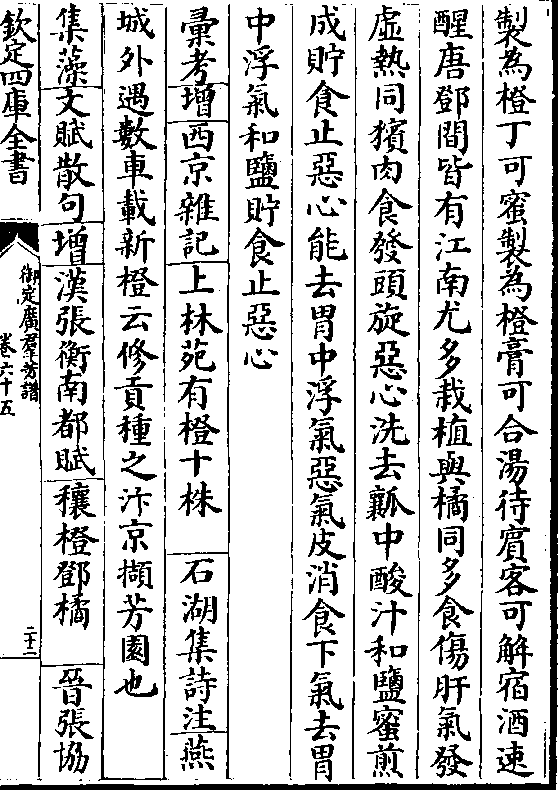 製為橙丁可蜜製為橙膏可合湯待賓客可解宿酒速
醒唐鄧間皆有江南尤多栽植與橘同多食傷肝氣發
虛熱同獱肉食發頭旋惡心洗去瓤中酸汁和鹽蜜煎
成貯食止惡心能去胃中浮氣惡氣皮消食下氣去胃
中浮氣和鹽貯食止惡心
彚考增西京雜記上林苑有橙十株 石湖集詩注燕
城外遇數車載新橙云修貢種之汴京擷芳園也
集藻文賦散句增漢張衡南都賦穰橙鄧橘 晉張協
欽定四庫全書
御定廣羣芳譜
卷六十五
二十二